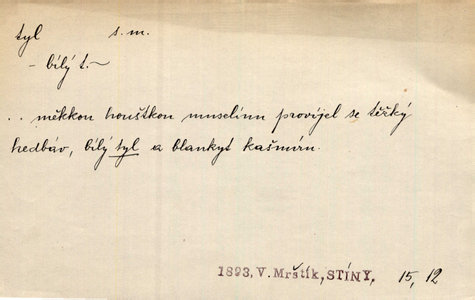 tyl s. m.
- bílý t. ~
.. měkkou houštkou muselinu províjel se těžký
hedbáv, bílý tyl a blankyt kašmíru.
1893, V. Mrštík, STÍNY, 15, 12